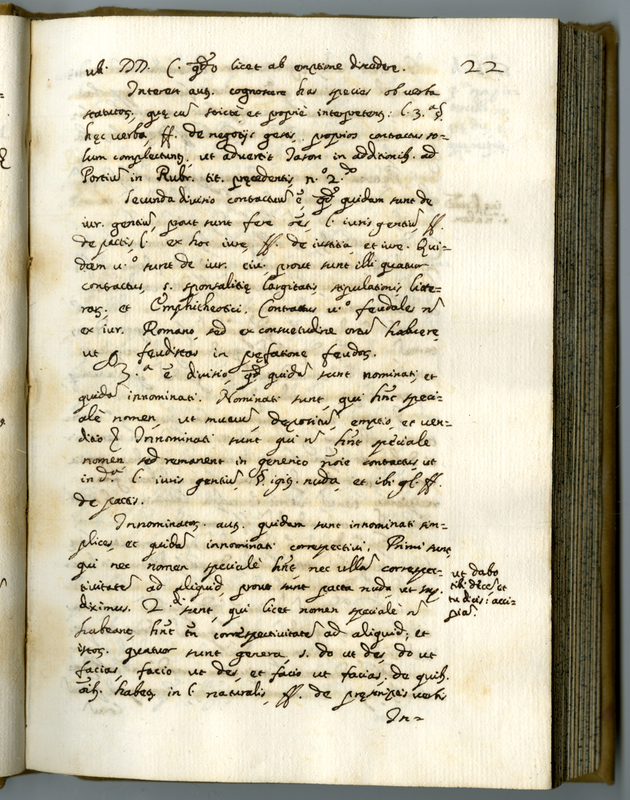 ub. DD. C. qdo licet ab emptione discedere. 22
Interest aut. cognoscere has species ob verba
statutor., que cu stricte et proprie interpretent: l. 3. §
hec verba, ff. de negotijs gestis, proprios contractus so-
lum complectunt, ut advertit Jason in additionib. ad
Portiu in Rubr. tit. precedentis n.° 2.do
Secunda divisio contractuu e, qd quidam sunt de
iur. gentiu, prout sunt fere oes, l. iuris gentiu, ff.
de pactis, l. ex hoc iure, ff. de iustitia et iure. Qui-
dam v.° sunt de iur. civ. prout sunt illi quatuor
contractus, s. sponsalitie largitatis, stipulationis, litte-
rar. et Emphiteotici. Contractus v.° feudales n
ex iur. Romano, sed ex consuetudine ortu habuere,
ut feudistas in prefatione feudor.
3.a e divisio, qd quida sunt nominati, et
quida innominati. Nominati sunt, qui hnt speci-
ale nomen, ut mutuu, depositu, emptio, et ven-
ditio. Innominati sunt qui n hnt speciale
nomen, sed remanent in generico noie contractus, ut
in d.a l. iuris gentiu, §. igit. nuda, et ibi gl. ff.
de pactis.
Innominator. aut. quidam sunt innominati sim-
plices, et quida innominati correspectivi. Primi sunt
qui nec nomen speciale hnt nec ulla correspec-
tivitate ad aliquid, prout sunt pacta nuda ut sup.
diximus. 2.di sunt, qui licet nomen speciale n
habeant, hnt tn correspectivitate ad aliquid; et
istor. quatuor sunt genera s. do ut des, do ut
facias, facio ut des, et facio ut facias, de quib.
oib. habet. in l. naturalis, ff. de prescriptis verbis
In-
ut dabo
tibi dece et
tu dicis: acci-
pia